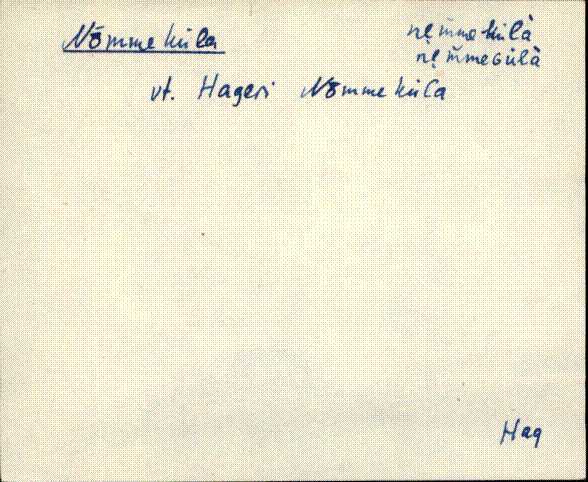 Nõmmeküla
nẹm̀mekülà
nẹm̀meGülà
vt. Hageri Nõmmeküla
Hag